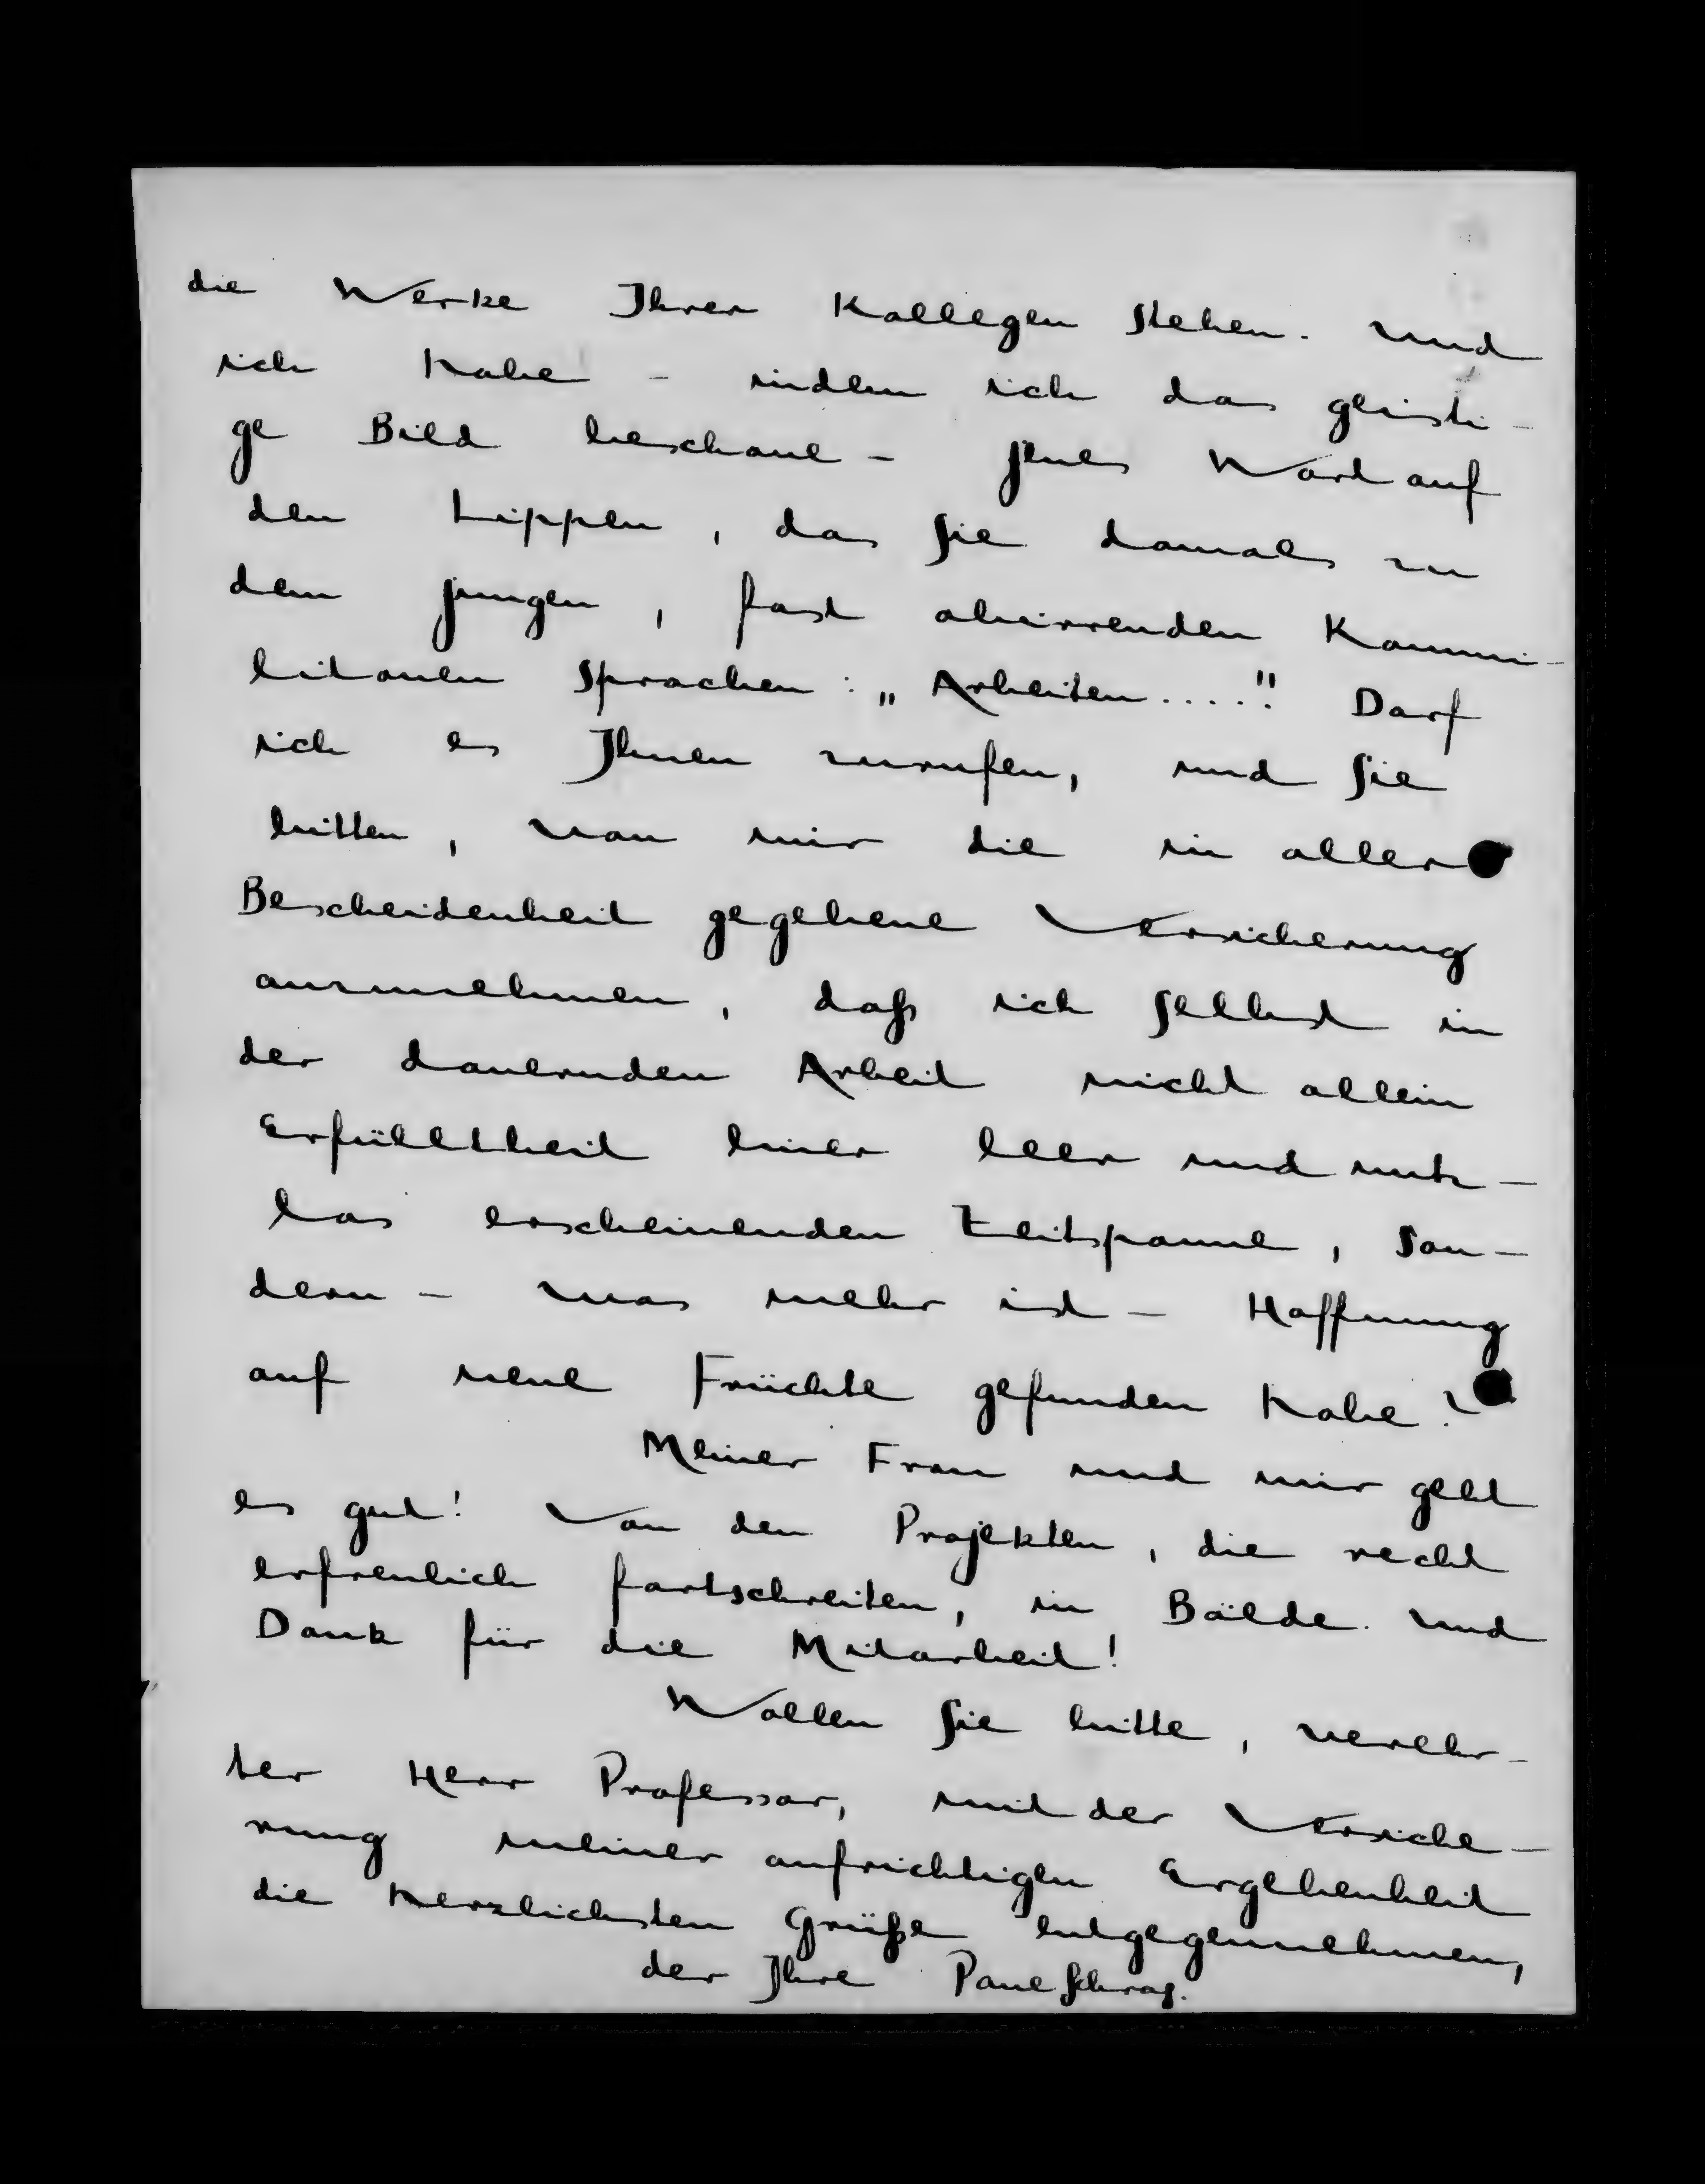 die Werke Ihrer Kollegen stehen. Und
ich habe - indem ich das geisti-
ge Bild beschaue - jenes Wort auf
den Lippen, das Sie damals zu
dem jungen, fast abirrenden Kommi-
litonen sprachen: „Arbeiten....!" Darf
ich es Ihnen zurufen, und Sie
bitten, von mir die in aller
Bescheidenheit gegebene Versicherung
anzunehmen, daß ich selbst in
der dauernden Arbeit nicht allein
Erfülltheit einer leer und nutz-
los erscheinenden Zeitspanne, son-
dern - was mehr ist - Hoffnung
auf neue Früchte gefunden habe?
Meiner Frau und mir geht
es gut! Von den Projekten, die recht
erfreulich fortschreiten, in Bälde. Und
Dank für die Mitarbeit!
Wollen Sie bitte, verehr-
ter Herr Professor, mit der Versiche-
rung meiner aufrichtigen Ergebenheit
die herzlichsten Grüße entgegennehmen,
der Ihre Paul Schrag.